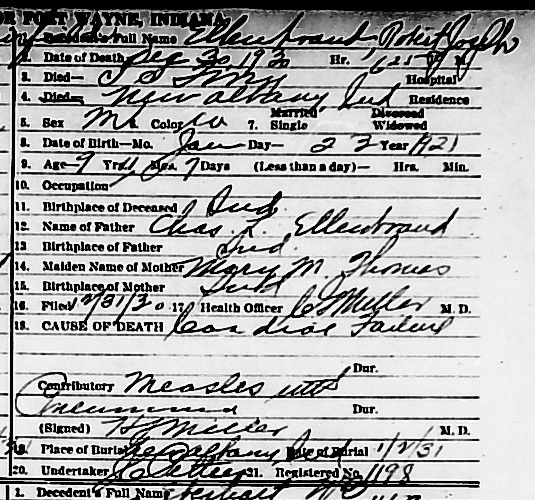 OR FORT WAYNE, INDIANA
1. Decedent's Full Name Ellenbrand Robert Joseph
2. Date of Death Dec 30 1930 Hr. 625 P M
3. Died— Hospital
4. Died— New Albany Ind Residence
5. Sex M 6. Color W 7. Married Single Divorced Widowed
8. Date of Birth—Mo. Jan Day— 23 Year 1921
9. Age— 9 Yrs. 11 Mos. 7 Days (Less than a day)— Hrs. Min.
10. Occupation
11. Birthplace of Deceased Ind
12. Name of Father Chas L Ellenbrand
13. Birthplace of Father Ind.
14. Maiden Name of Mother Mary M. Thomas
15. Birthplace of Mother Ind
16. Filed 12/31/30 17. Health Officer Miller M. D.
18. CAUSE OF DEATH Cardiac Failure
Dur.
Contributory Measles with
Pneumonia Dur.
(Signed) Miller M. D.
19. Place of Burial New Albany Ind Date of Burial 1/2/31
20. Undertaker 21. Registered No. 1198
1. Decedent's Full Name